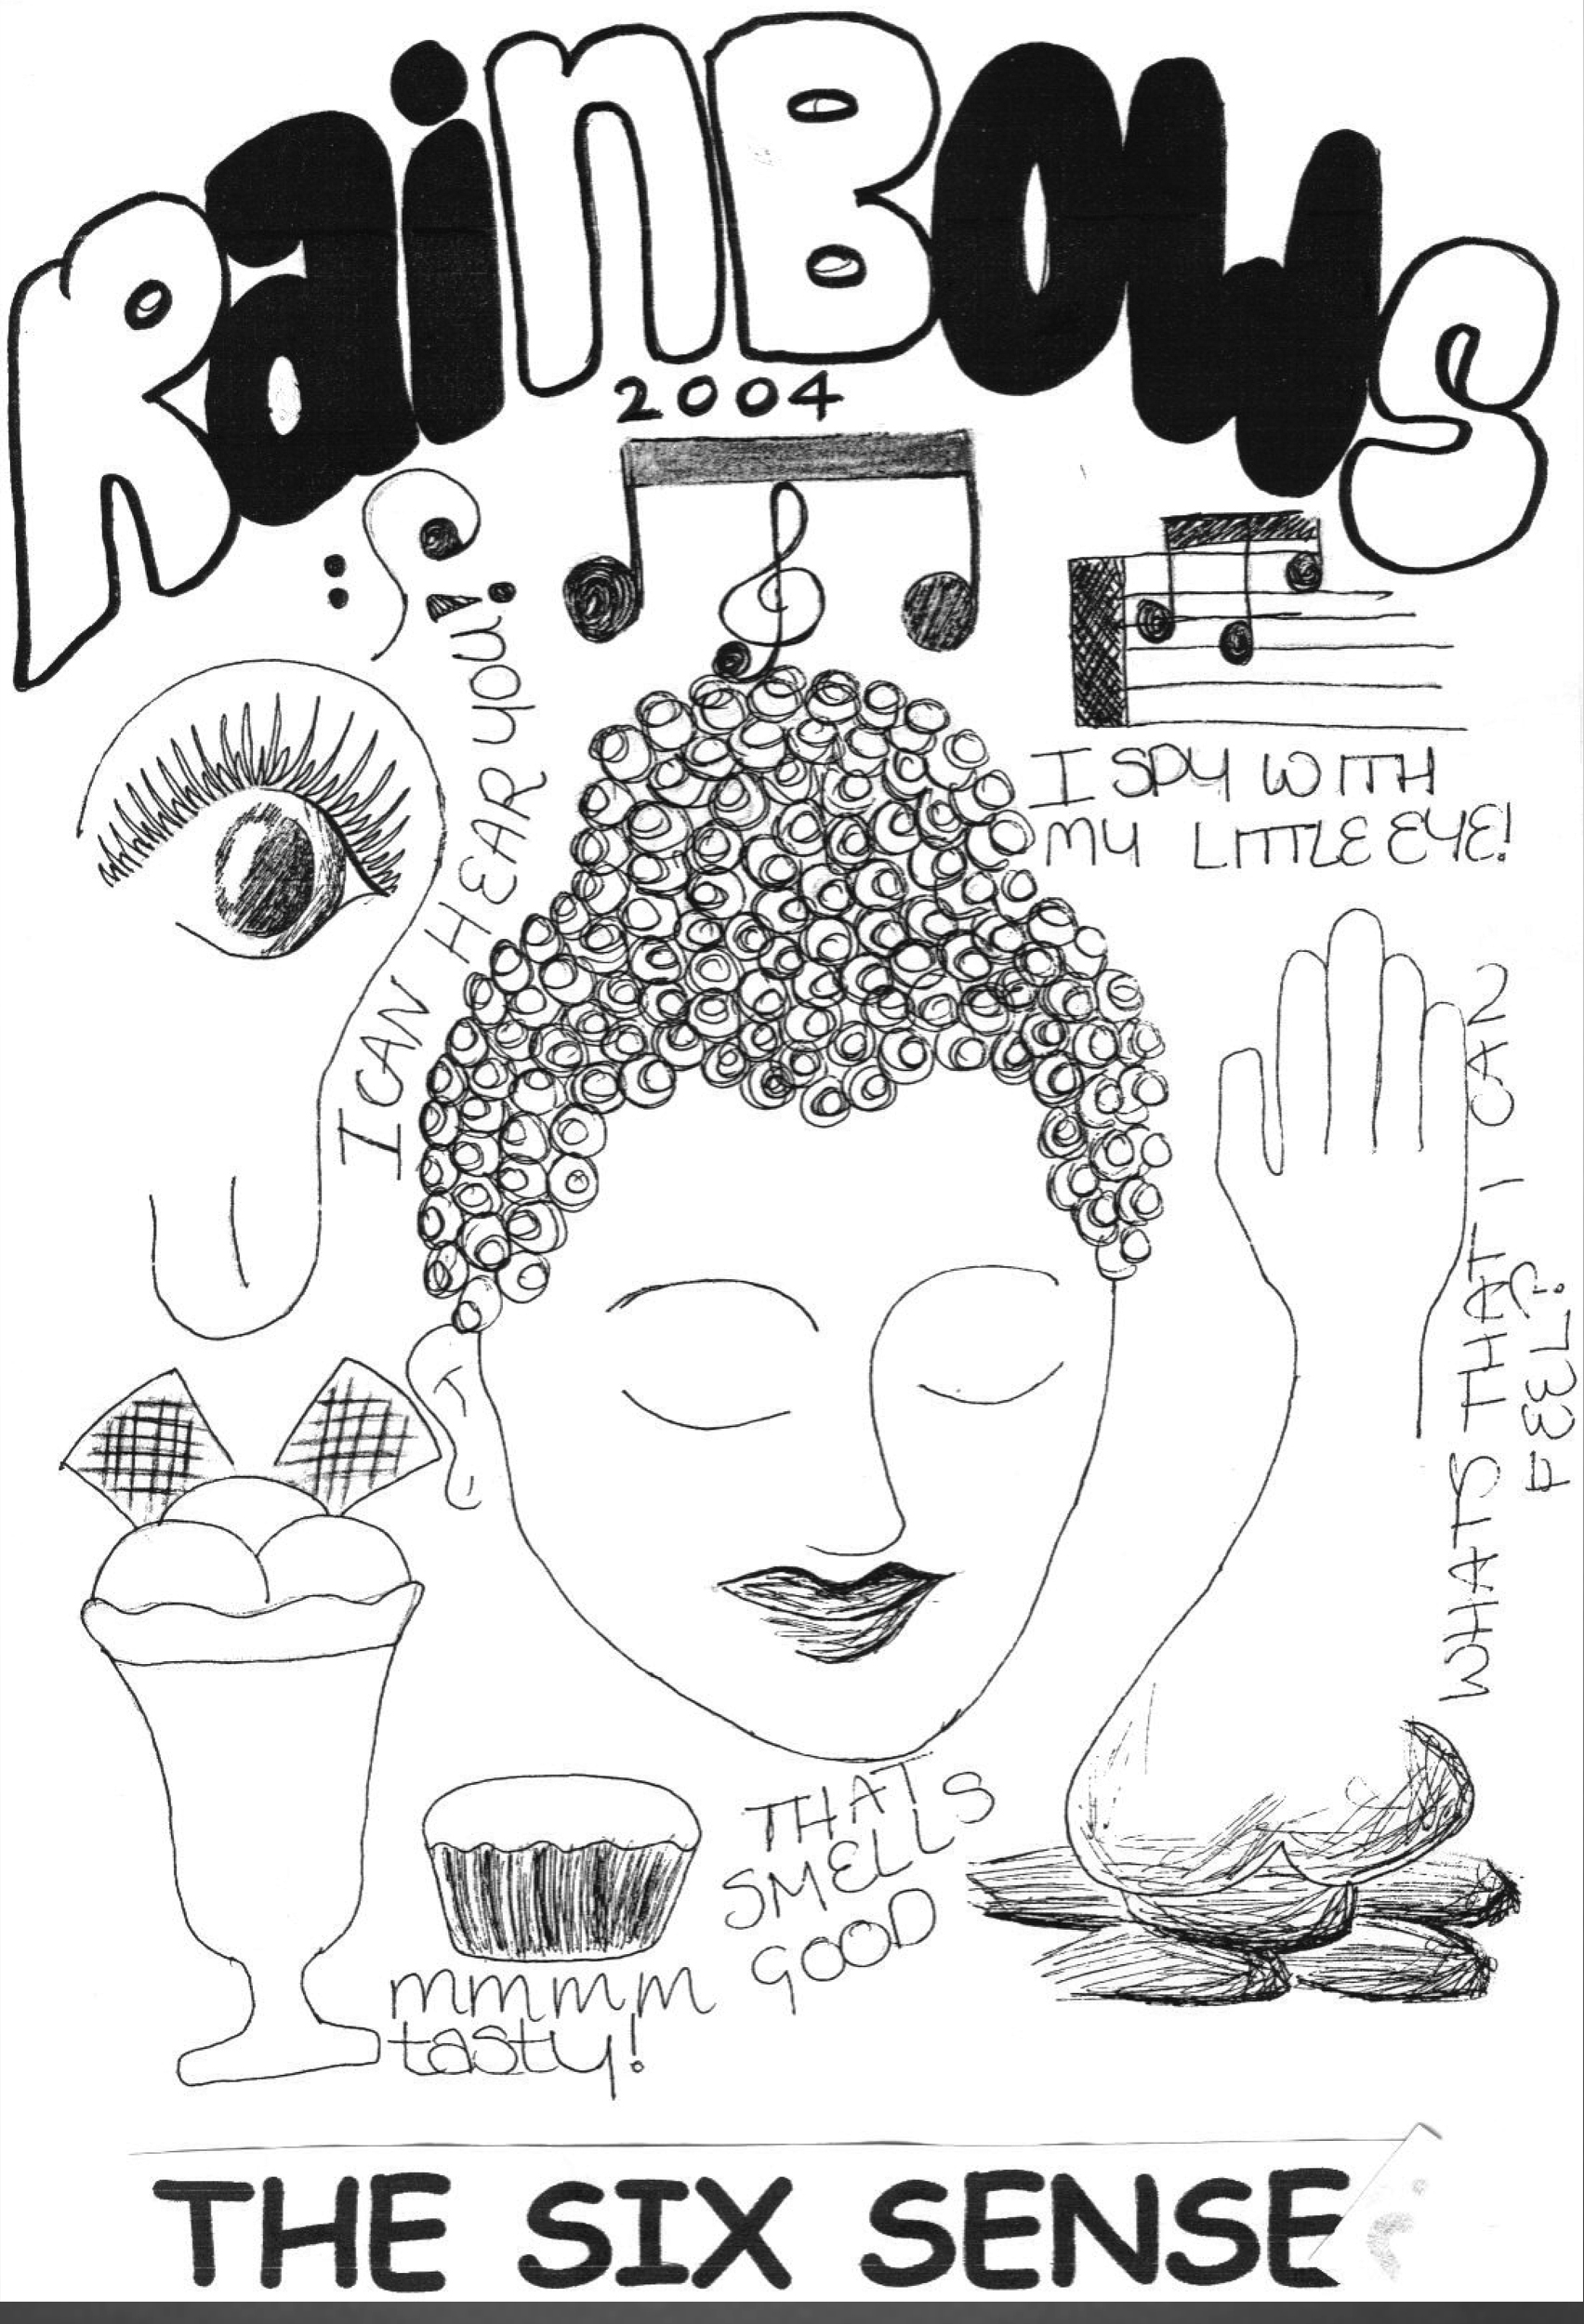 RainBows
2004
I CAN HEAR YOU!
I SPY WITH
MY LITTLE EYE!
WHATS THAT I CAN
FEEL?
THATS
SMELLS
GOOD
mmmm
tasty!
THE SIX SENSE